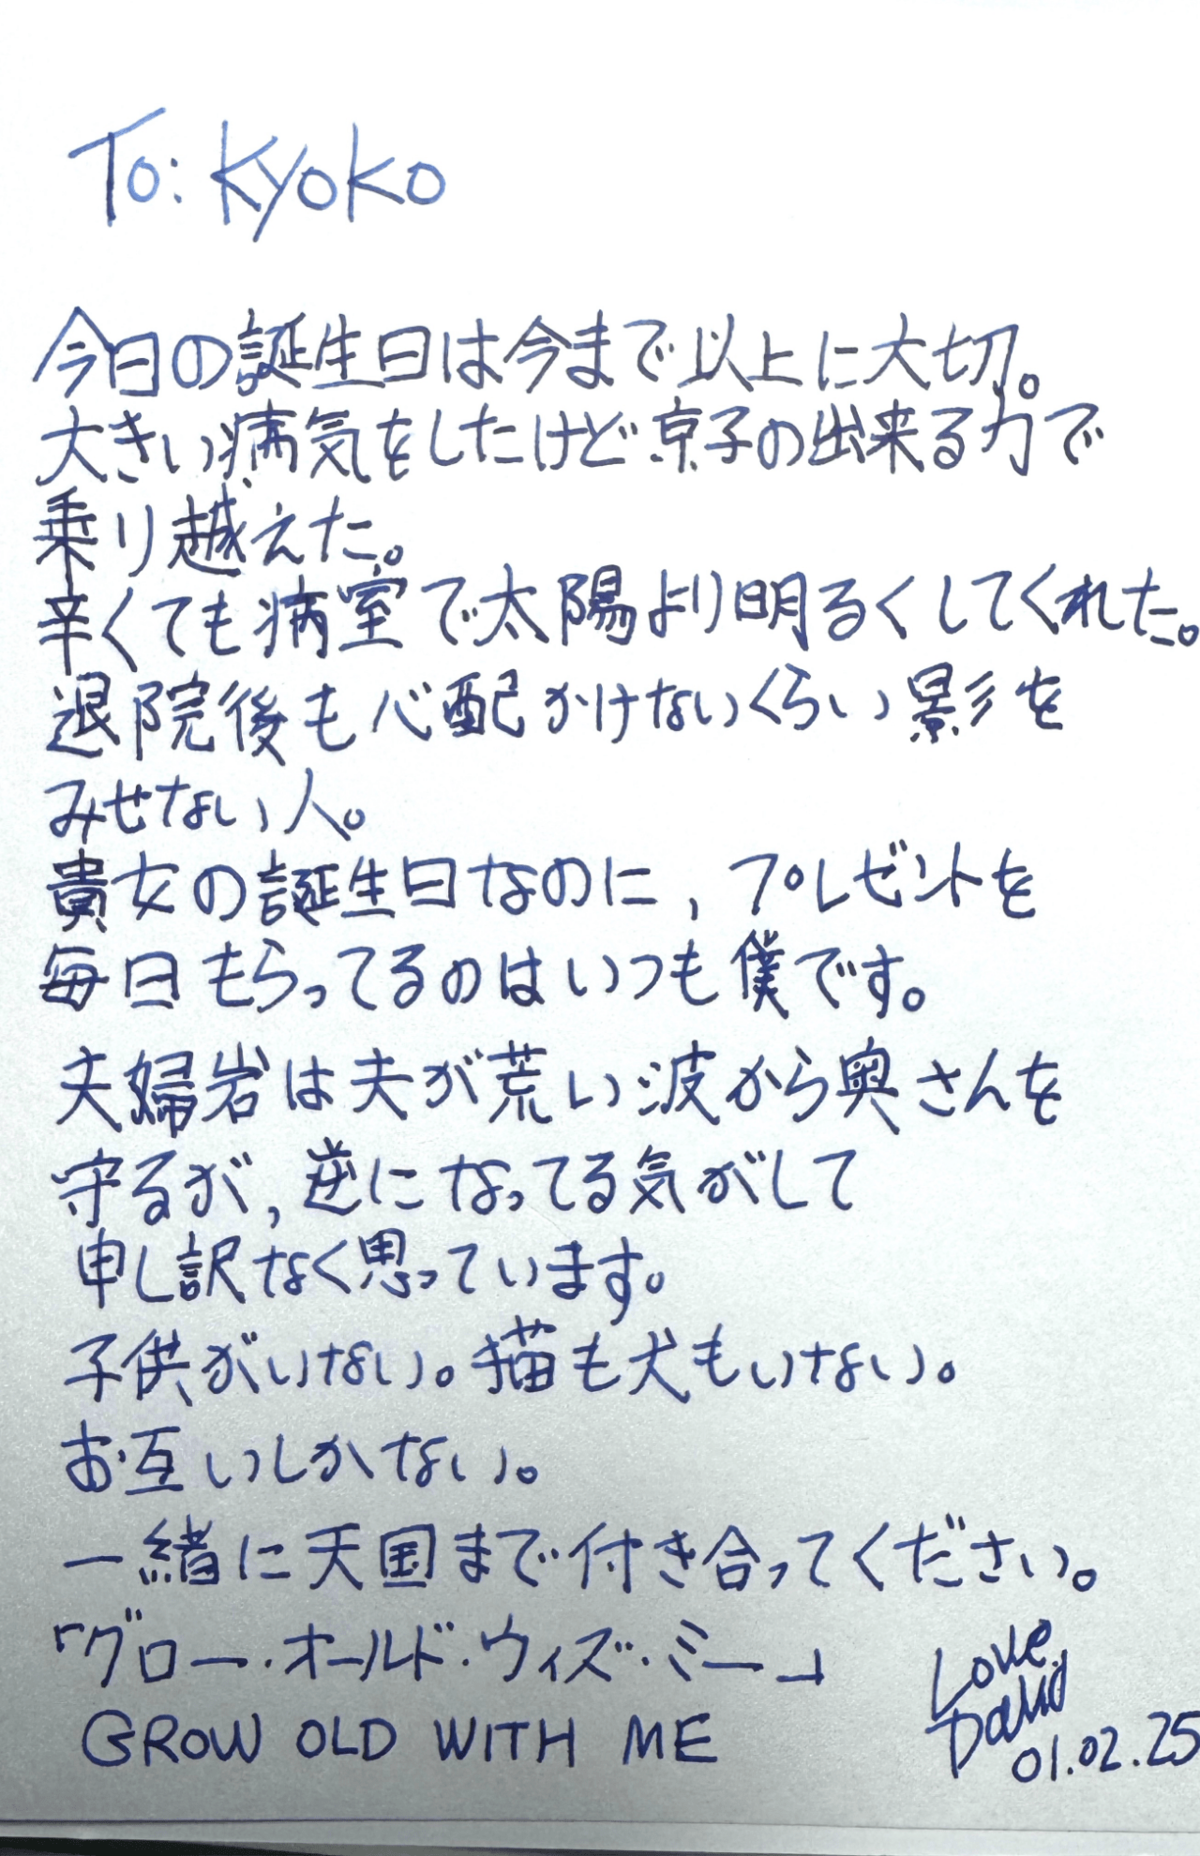 To: Kyoko
今日の誕生日は今まで以上に大切。
大きい病気をしたけど京子の出来る力で
乗り越えた。
辛くても病室で太陽より明るくしてくれた。
退院後も心配かけないくらい影を
みせない人。
貴女の誕生日なのに、プレゼントを
毎日もらってるのはいつも僕です。
夫婦岩は夫が荒い波から奥さんを
守るが、逆になってる気がして
申し訳なく思っています。
子供がいない。猫も犬もいない。
お互いしかない。
一緒に天国まで付き合ってください。
「グロー・オールド・ウィズ・ミー」
GROW OLD WITH ME
Love
David
01.02.25